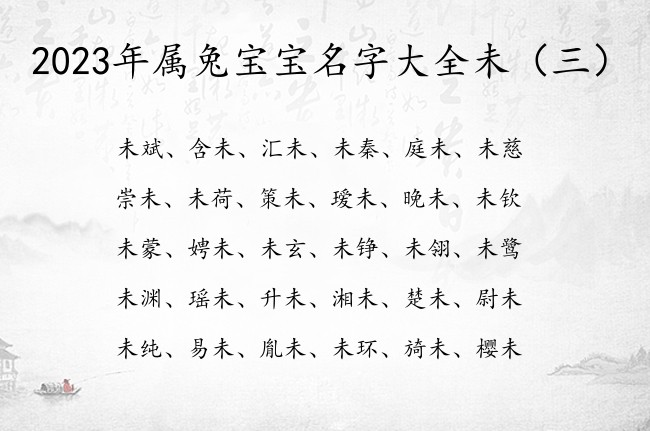 2023年属兔宝宝名字大全未（三）
未斌、含未、汇未、未秦、庭未、未慈
崇未、未荷、策未、瑷未、晚未、未钦
未蒙、娉未、未玄、未铮、未翎、未鹭
未渊、瑶未、升未、湘未、楚未、尉未
未纯、易未、胤未、未环、旖未、樱未